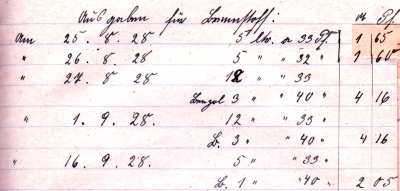 Ausgaben für Brennstoff: M Pf.
Am 25. 8. 28 5 ltr. a 33 Pf. 1 65
" 26. 8. 28 5 " " 32 " 1 60
" 27. 8. 28 12 " " 33
Benzol 3 " " 40 " 4 16
" 1. 9. 28. 12 " " 33 "
B. 3 " " 40 " 4 16
" 16. 9. 28. 5 " " 33 "
B. 1 " " 40 " 2 05